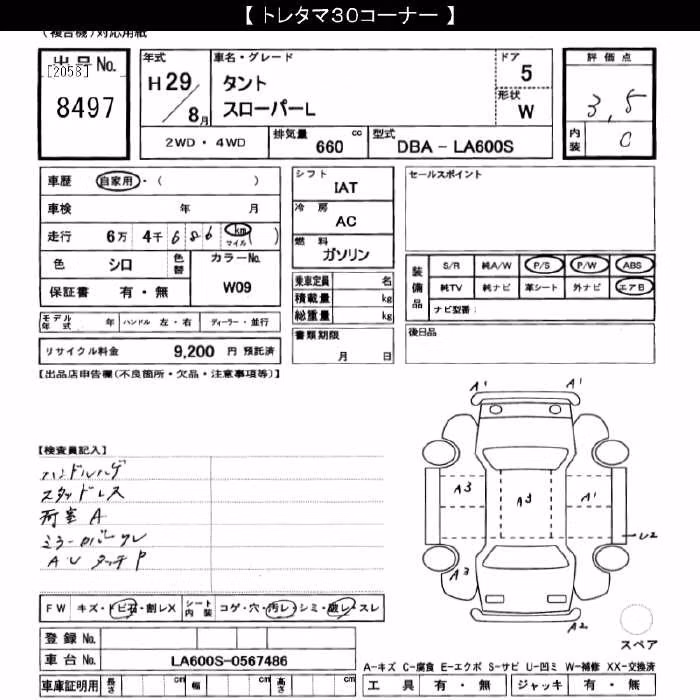 【 トレタマ30コーナー 】
(複合機)対応用紙
出品No.
[2058]
8497
年式
H 29 / 8月
車名・グレード
タント
スローパーL
ドア
5
形状
W
2WD・4WD
排気量 660 cc
型式 DBA - LA600S
評価点
3,5
内装 C
車歴 自家用・( )
車検 年 月
走行 6万 4千 6 8 6 km マイル ( )
色 シロ 色替
カラーNo.
W09
保証書 有・無
モデル年式 年 ハンドル 左・右 ディーラー・並行
リサイクル料金 9,200 円 預託済
シフト
IAT
冷房
AC
燃料
ガソリン
乗車定員 名
積載量 kg
総重量 kg
書類期限
月 日
セールスポイント
装備品
S/R 純A/W P/S P/W ABS
純TV 純ナビ 革シート 外ナビ エアB
ナビ型番:
後日品
【出品店申告欄(不良箇所・欠品・注意事項等)】
【検査員記入】
ハンドルハゲ
スタッドレス
荷室 A
FW キズ・トビ石・割レX シート内装 コゲ・穴・汚レ・シミ・破レ・スレ
登録No.
車台No. LA600S-0567486
車庫証明用 長さ cm 幅 cm 高さ cm
A1 A1
A3 A3 A1
U2
A3
A2
スペア
A-キズ C-腐食 E-エクボ S-サビ U-凹ミ W-補修 XX-交換済
工具 有・無 ジャッキ 有・無